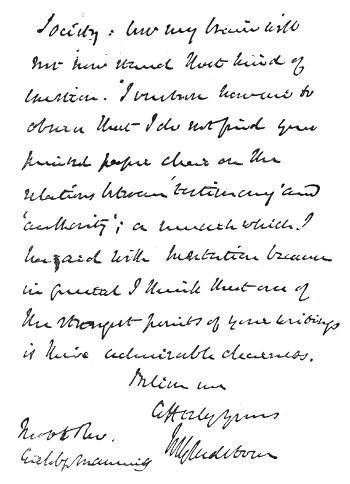 Society: but my brain will
not now stand that kind of
question. I venture however to
observe that I do not find your
printed paper clear on the
relations between 'testimony' and
'authority'; a remark which I
hazard with hesitation because
in general I think that one of
the strongest points of your writings
is their admirable clearness.
Believe me
aff'tely yours
WEGladstone
Most Rev.
Archbp Manning